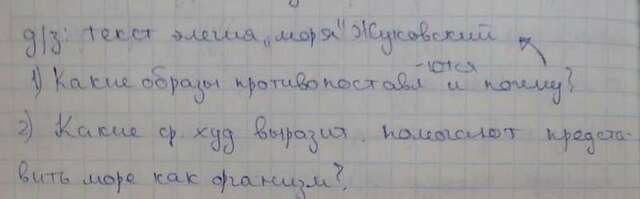 д/з: текст элегия „моря" Жуковский
1) Какие образы противопоставл-ются и почему?
2) Какие ср. худ выразит. помогают предста-
вить море как организм?